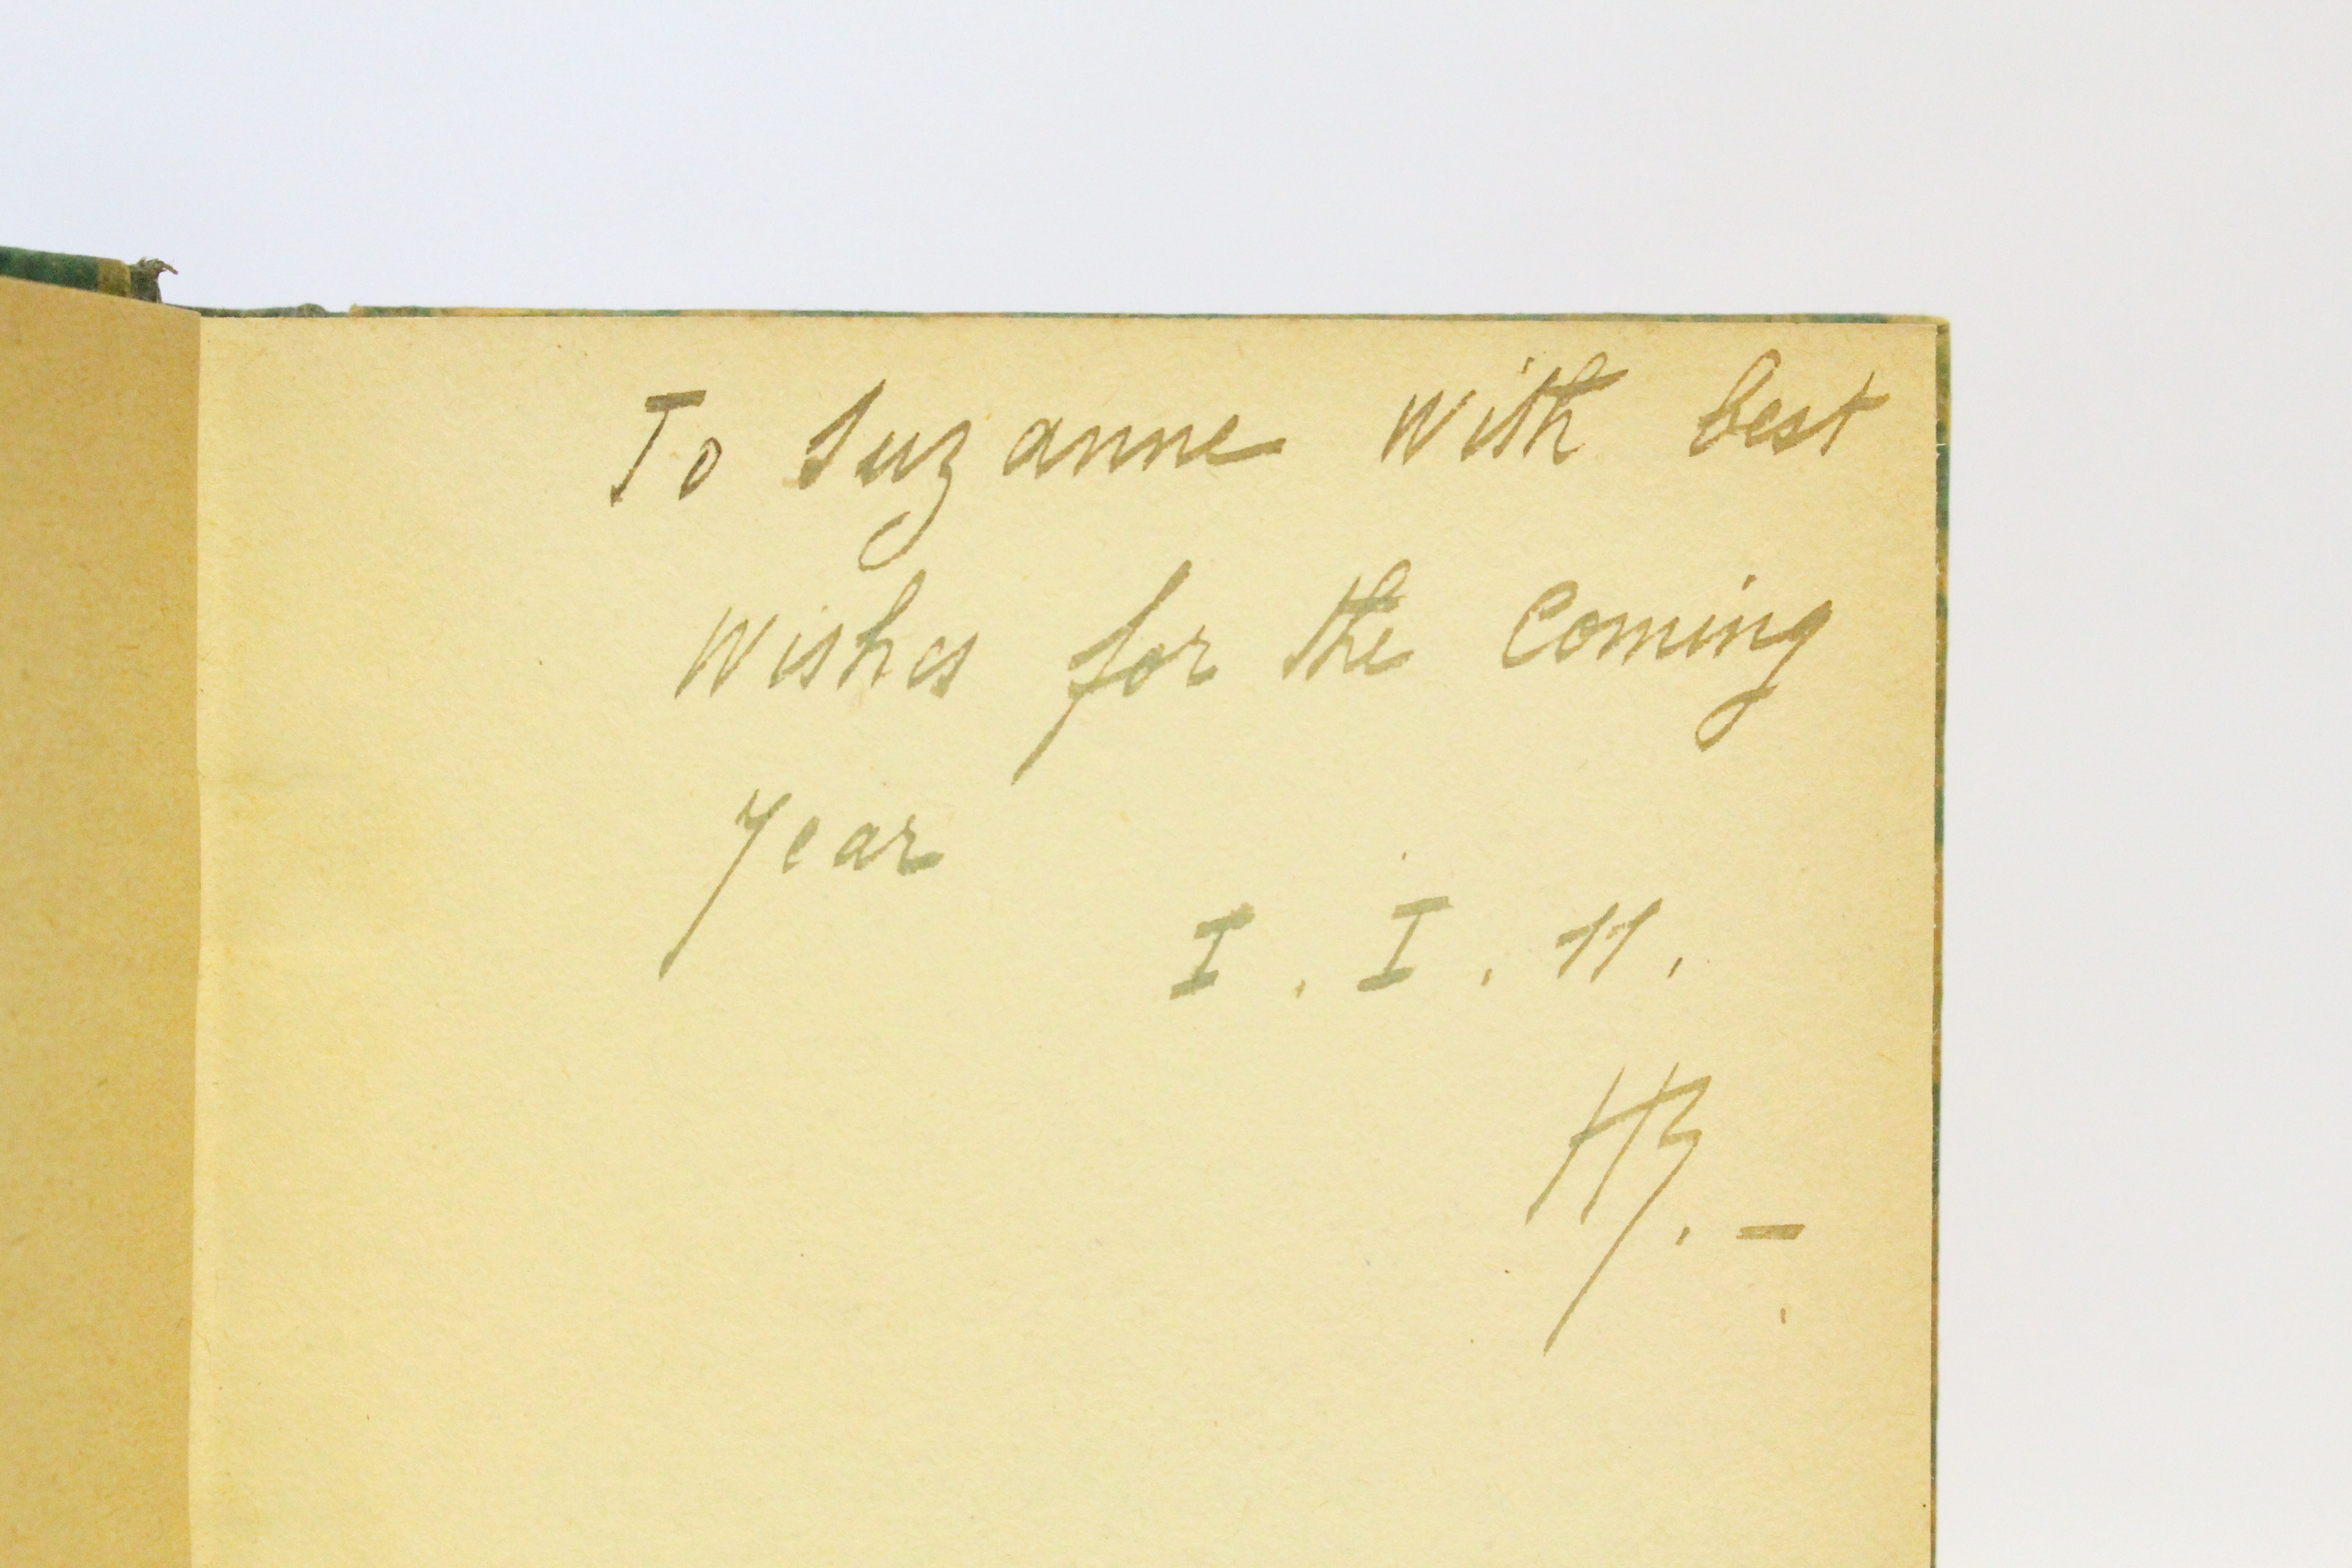 To Suzanne with best
wishes for the coming
year
I. I. 11.
HB. –